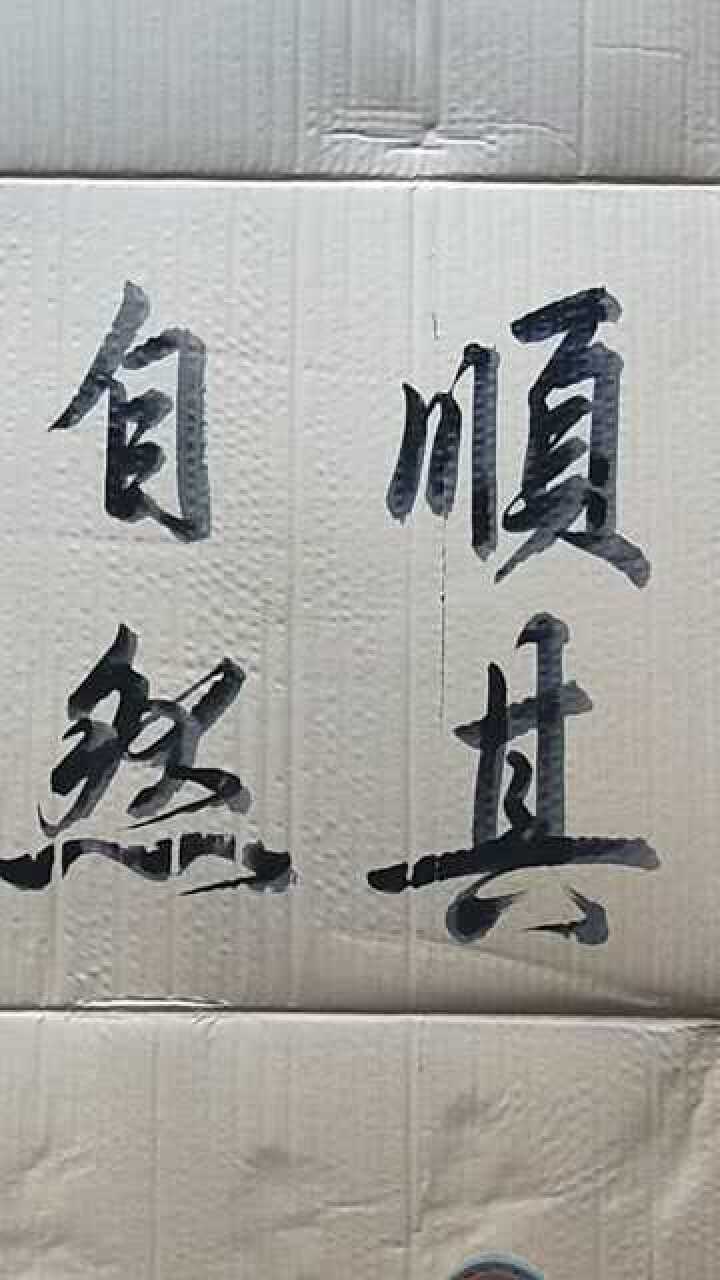 順其
自然